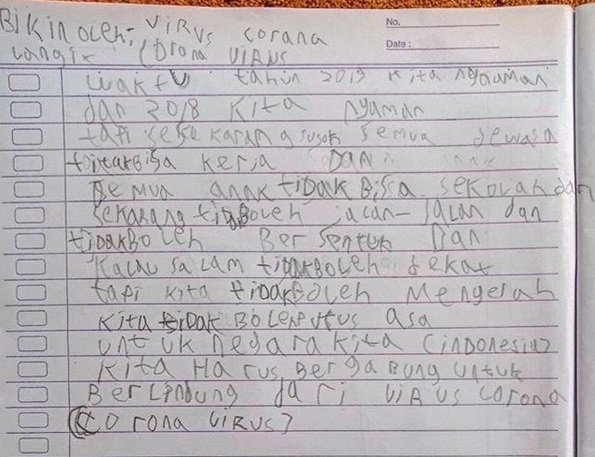 BIKIN OLEH: VIRUS corona
No.
Langix (orona VIRUS
Date :
waktu tahun 2019 kita nyaman
dan 2018 KITA nyaman
tapi sekarang susah semua dewasa
tidak BISA kerja DAN
semua anak tidak BISA sekolah dan
sekarang tidak boleh jalan-jalan dan
tidak Boleh Bersentuk Dan
Kalau salam tidak BOLEH dekat
tapi kita tidak BOLEH Mengerah
Kita tidak BOLEH putus asa
untuk negara kita (indonesia)
KITA HARUS Bergabung untuk
Berlindung dari VIRUS corona
(corona VIRUS)